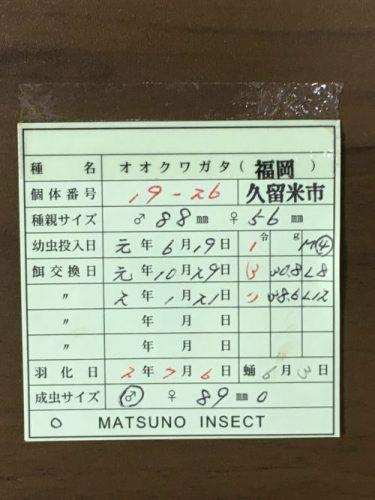 種 名 オオクワガタ ( 福岡 )
個体番号 19-26 久留米市
種親サイズ ♂ 88 mm ♀ 56 mm
幼虫投入日 元 年 6 月 19 日 1 令 g
餌交換日 元 年 10 月 29 日
〃 2 年 1 月 21 日
〃 年 月 日
〃 年 月 日
羽化日 2 年 7 月 6 日 蛹 6 月 3 日
成虫サイズ ♂ ♀ 89 mm 0
0 MATSUNO INSECT